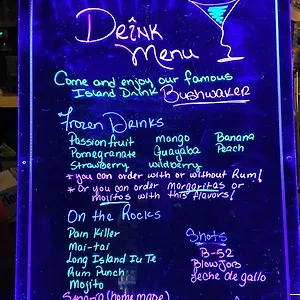 Drink
Menu
Come and enjoy our famous
Island Drink Bushwaker
Frozen Drinks
Passionfruit mango Banana
Pomegranate Guayaba Peach
Strawberry wildberry
* you can order with or without Rum!
* Or you can order margaritas or
mojitos with this flavors!
On the Rocks
Pain Killer
Mai-tai
Long Island Ice Te
Rum Punch
Mojito
Sangria (home made)
Shots
B-52
Blow Job
Leche de gallo